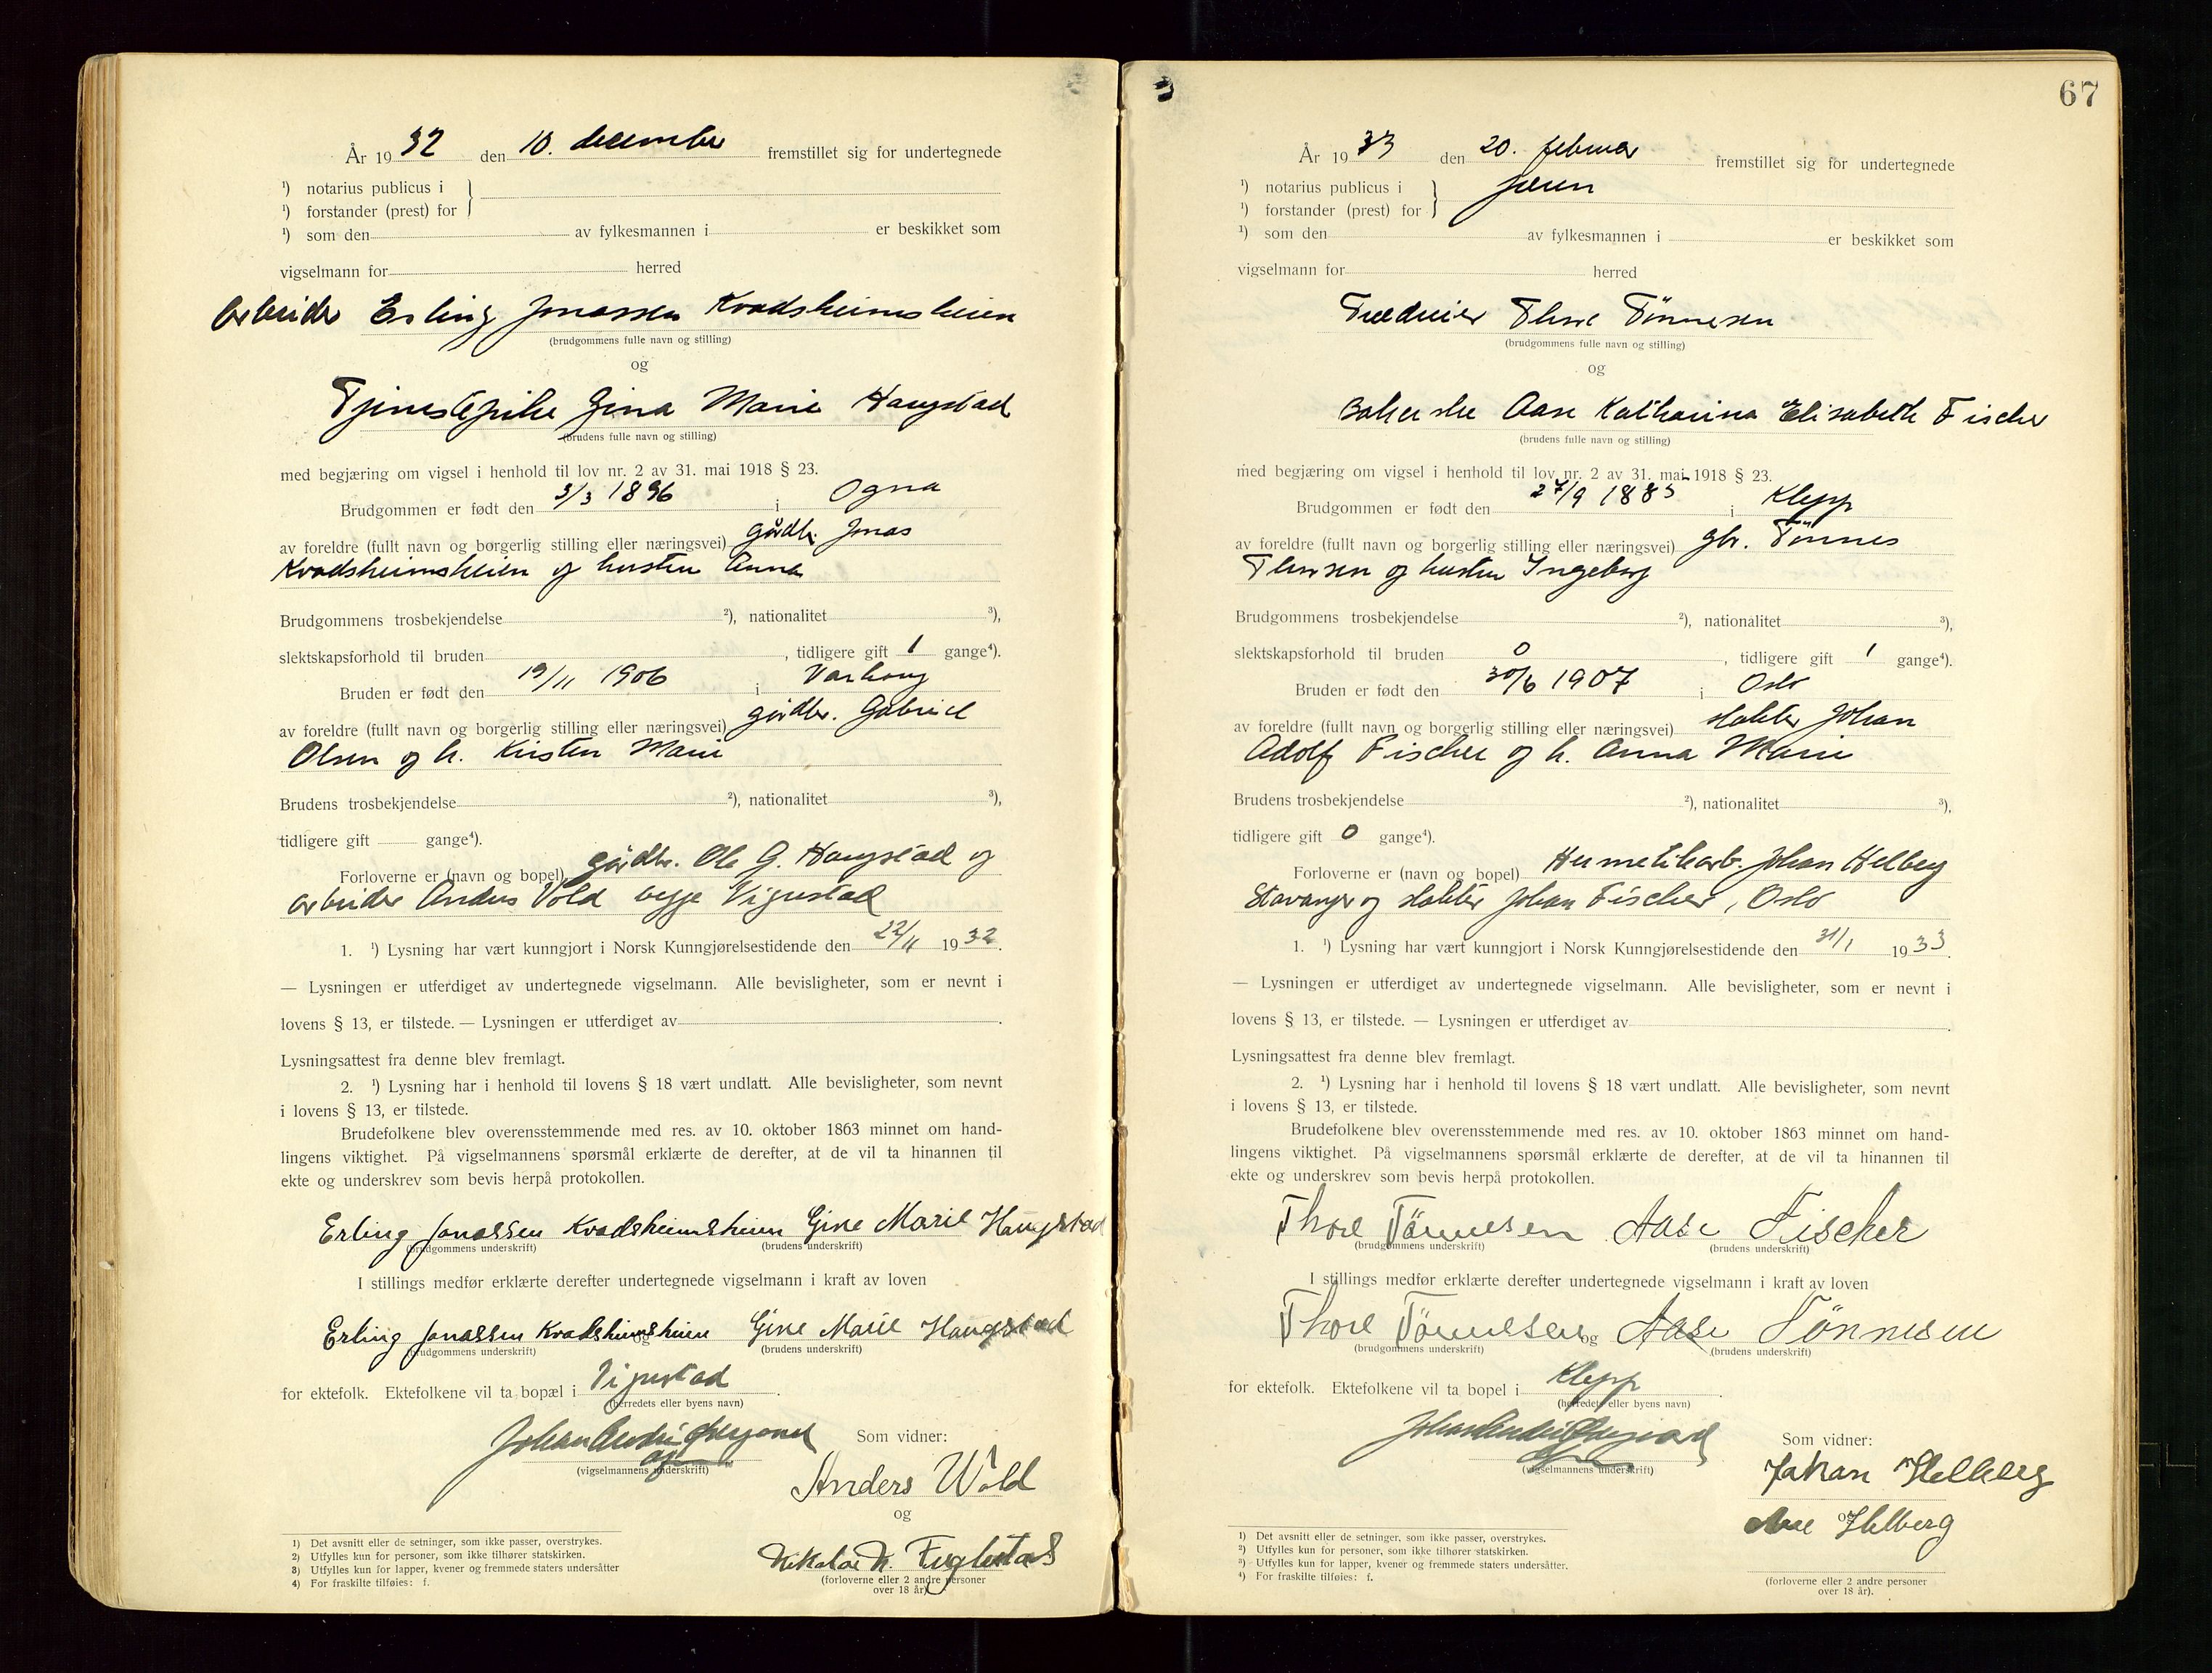 År 1932 den 10. december fremstillet sig for undertegnede
¹) notarius publicus i
¹) forstander (prest) for
¹) som den av fylkesmannen i er beskikket som
vigselmann for herred
Arbeider Erling Jonassen Kvadsheimsheien
(brudgommens fulle navn og stilling)
og
Tjenestepike Gina Marie Haugstad
(brudens fulle navn og stilling)
med begjæring om vigsel i henhold til lov nr. 2 av 31. mai 1918 § 23.
Brudgommen er født den 3/3 1896 i Ogna
av foreldre (fullt navn og borgerlig stilling eller næringsvei) gårdbr. Jonas
Kvadsheimsheien og hustru Anna
Brudgommens trosbekjendelse ²), nationalitet ³),
slektskapsforhold til bruden , tidligere gift 1 gange⁴).
Bruden er født den 19/11 1906 i Varhaug
av foreldre (fullt navn og borgerlig stilling eller næringsvei) gårdbr. Gabriel
Olsen og h. Kirsten Marie
Brudens trosbekjendelse ²), nationalitet ³),
tidligere gift gange⁴).
Forloverne er (navn og bopel) gårdbr. Ole G. Haugstad og
arbeider Anders Vold begge Vigrestad
1. ¹) Lysning har vært kunngjort i Norsk Kunngjørelsestidende den 22/11 1932.
— Lysningen er utferdiget av undertegnede vigselmann. Alle bevisligheter, som er nevnt i
lovens § 13, er tilstede. — Lysningen er utferdiget av .
Lysningsattest fra denne blev fremlagt.
2. ¹) Lysning har i henhold til lovens § 18 vært undlatt. Alle bevisligheter, som nevnt
i lovens § 13, er tilstede.
Brudefolkene blev overensstemmende med res. av 10. oktober 1863 minnet om hand-
lingens viktighet. På vigselmannens spørsmål erklærte de derefter, at de vil ta hinannen til
ekte og underskrev som bevis herpå protokollen.
Erling Jonassen Kvadsheimsheien Gine Marie Haugstad
(brudgommens underskrift) (brudens underskrift)
I stillings medfør erklærte derefter undertegnede vigselmann i kraft av loven
Erling Jonassen Kvadsheimsheien og Gine Marie Haugstad
(brudgommens underskrift) (brudens underskrift)
for ektefolk. Ektefolkene vil ta bopæl i Vigrestad .
(herredets eller byens navn)
Som vidner:
(vigselmannens underskrift)
Anders Wold
og
Fuglestad
(forloverne eller 2 andre personer
over 18 år).
1) Det avsnitt eller de setninger, som ikke passer, overstrykes.
2) Utfylles kun for personer, som ikke tilhører statskirken.
3) Utfylles kun for lapper, kvener og fremmede staters undersåtter
4) For fraskilte tilføies: f.
67
År 1933 den 20. februar fremstillet sig for undertegnede
¹) notarius publicus i Jæren
¹) forstander (prest) for
¹) som den av fylkesmannen i er beskikket som
vigselmann for herred
Thore Tønnesen
(brudgommens fulle navn og stilling)
og
Aase Katharina Elisabeth Fischer
(brudens fulle navn og stilling)
med begjæring om vigsel i henhold til lov nr. 2 av 31. mai 1918 § 23.
Brudgommen er født den 27/9 1883 i Klepp
av foreldre (fullt navn og borgerlig stilling eller næringsvei) gbr. Tønnes
Thorsen og hustru Ingeborg
Brudgommens trosbekjendelse ²), nationalitet ³),
slektskapsforhold til bruden 0 , tidligere gift 1 gange⁴).
Bruden er født den 30/6 1907 i Oslo
av foreldre (fullt navn og borgerlig stilling eller næringsvei) slakter Johan
Adolf Fischer og h. Anna Marie
Brudens trosbekjendelse ²), nationalitet ³),
tidligere gift 0 gange⁴).
Forloverne er (navn og bopel) Hermetikarb. Johan Helberg
Stavanger og slakter Johan Fischer, Oslo
1. ¹) Lysning har vært kunngjort i Norsk Kunngjørelsestidende den 31/1 1933.
— Lysningen er utferdiget av undertegnede vigselmann. Alle bevisligheter, som er nevnt i
lovens § 13, er tilstede. — Lysningen er utferdiget av .
Lysningsattest fra denne blev fremlagt.
2. ¹) Lysning har i henhold til lovens § 18 vært undlatt. Alle bevisligheter, som nevnt
i lovens § 13, er tilstede.
Brudefolkene blev overensstemmende med res. av 10. oktober 1863 minnet om hand-
lingens viktighet. På vigselmannens spørsmål erklærte de derefter, at de vil ta hinannen til
ekte og underskrev som bevis herpå protokollen.
Thore Tønnesen Aase Fischer
(brudgommens underskrift) (brudens underskrift)
I stillings medfør erklærte derefter undertegnede vigselmann i kraft av loven
Thore Tønnesen og Aase Tønnesen
(brudgommens underskrift) (brudens underskrift)
for ektefolk. Ektefolkene vil ta bopel i Klepp .
(herredets eller byens navn)
Som vidner:
(vigselmannens underskrift)
Johan Helberg
og
Aase Helberg
(forloverne eller 2 andre personer
over 18 år).
1) Det avsnitt eller de setninger, som ikke passer, overstrykes.
2) Utfylles kun for personer, som ikke tilhører statskirken.
3) Utfylles kun for lapper, kvener og fremmede staters undersåtter.
4) For fraskilte tilføies: f.